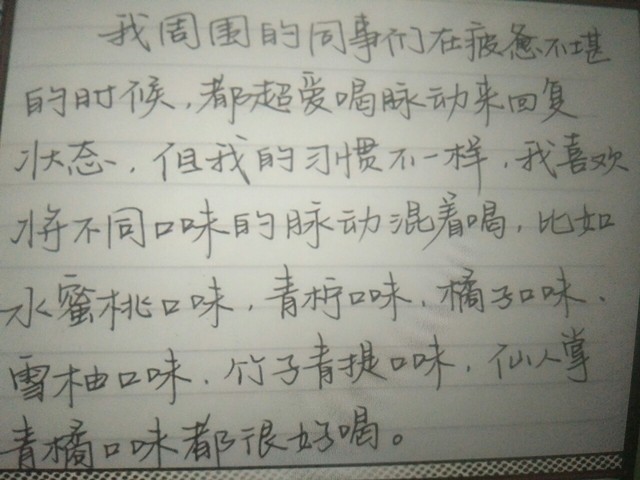 我周围的同事们在疲惫不堪
的时候，都超爱喝脉动来回复
状态，但我的习惯不一样，我喜欢
将不同口味的脉动混着喝，比如
水蜜桃口味，青柠口味，橘子口味、
雪柚口味，竹子青提口味，仙人掌
青橘口味都很好喝。